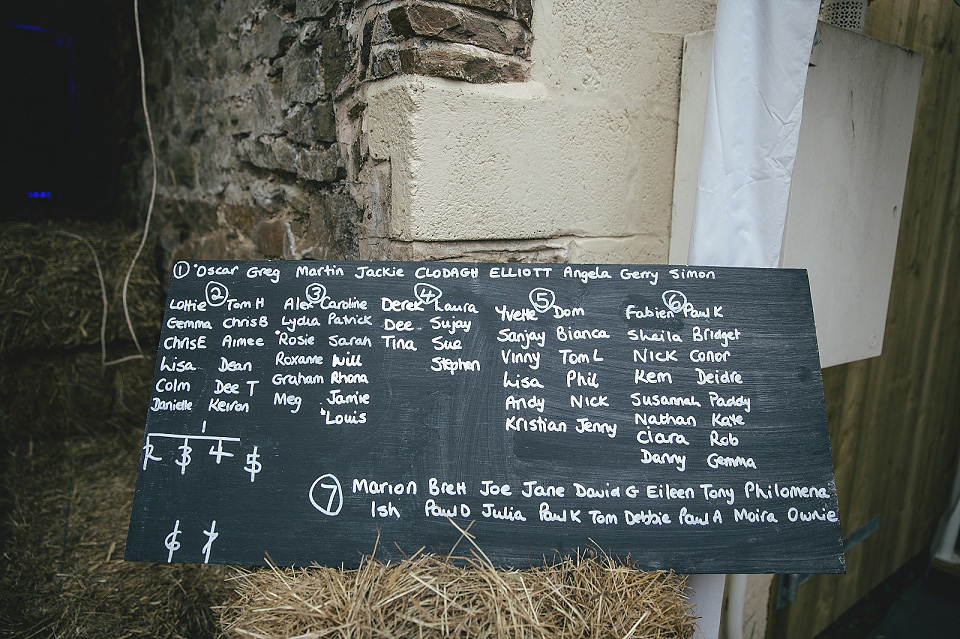 ① Oscar Greg Martin Jackie CLODAGH ELLIOTT Angela Gerry Simon
② ③ ④ ⑤ ⑥
Lottie Tom H Alex Caroline Derek Laura Yvette Dom Fabien Paul K
Gemma Chris B Lydia Patrick Dee Sujay Sanjay Bianca Sheila Bridget
Chris E Aimee Rosie Sarah Tina Sue Vinny Tom L Nick Conor
Lisa Dean Roxanne Will Stephen Lisa Phil Kem Deidre
Colm Dee T Graham Rhona Andy Nick Susannah Paddy
Danielle Keiron Meg Jamie Kristian Jenny Nathan Kate
Louis Ciara Rob
Danny Gemma
1
2 3 4 5
⑦ Marion Brett Joe Jane David G Eileen Tony Philomena
Ish Paul D Julia Paul K Tom Debbie Paul A Moira Ownie
6 7